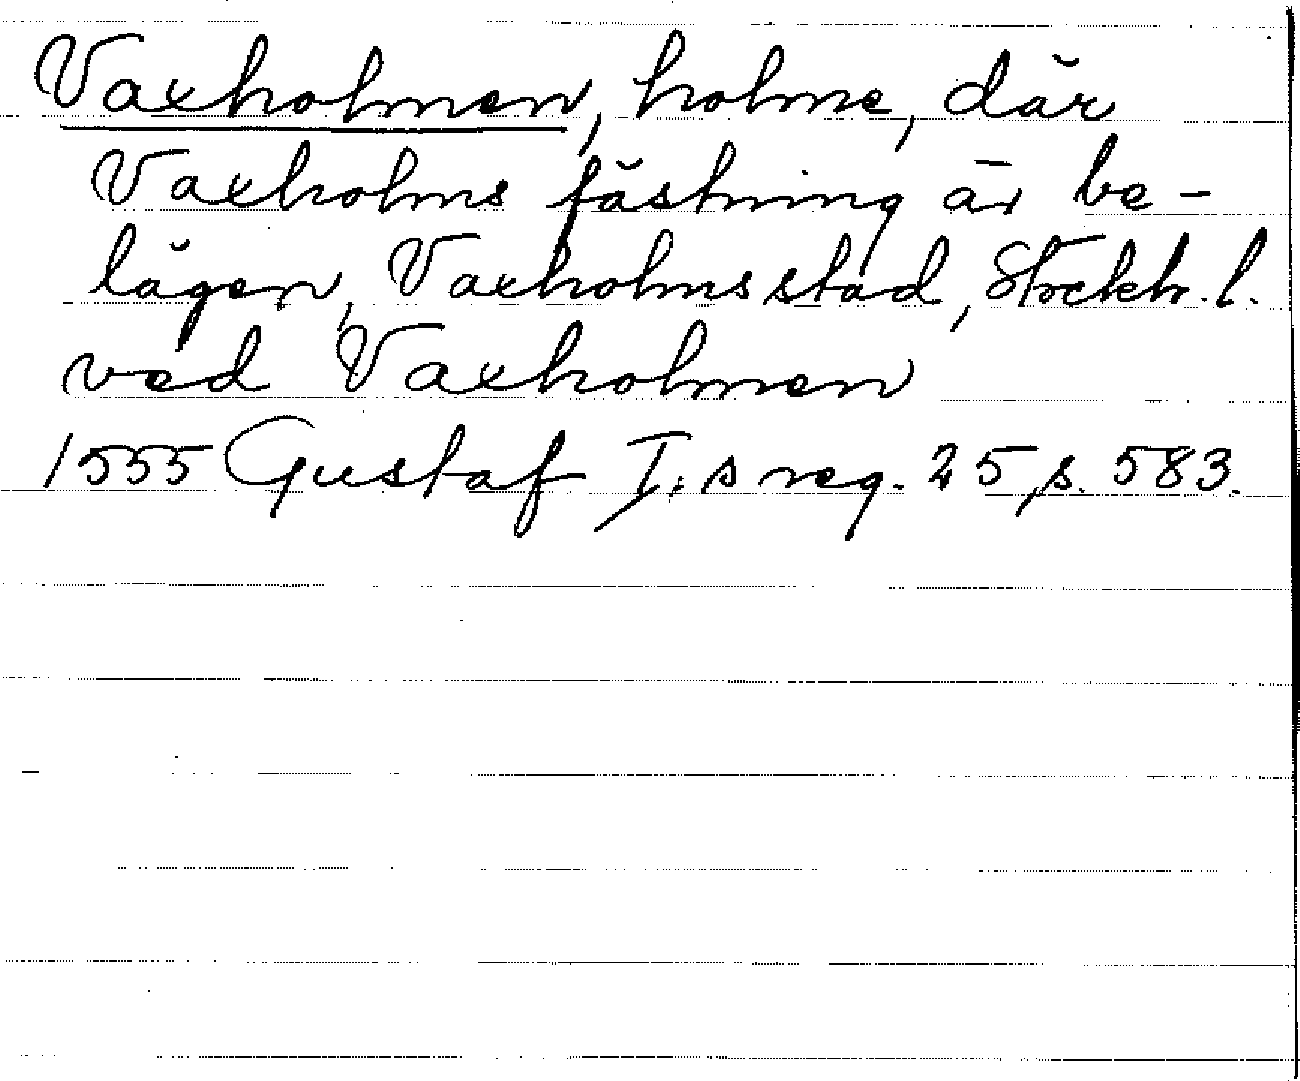 Vaxholmen, holme, där
Vaxholms fästning är be-
lägen, Vaxholms stad, Stockh. l.
ved Vaxholmen
1555 Gustaf I:s reg. 25, s. 583.